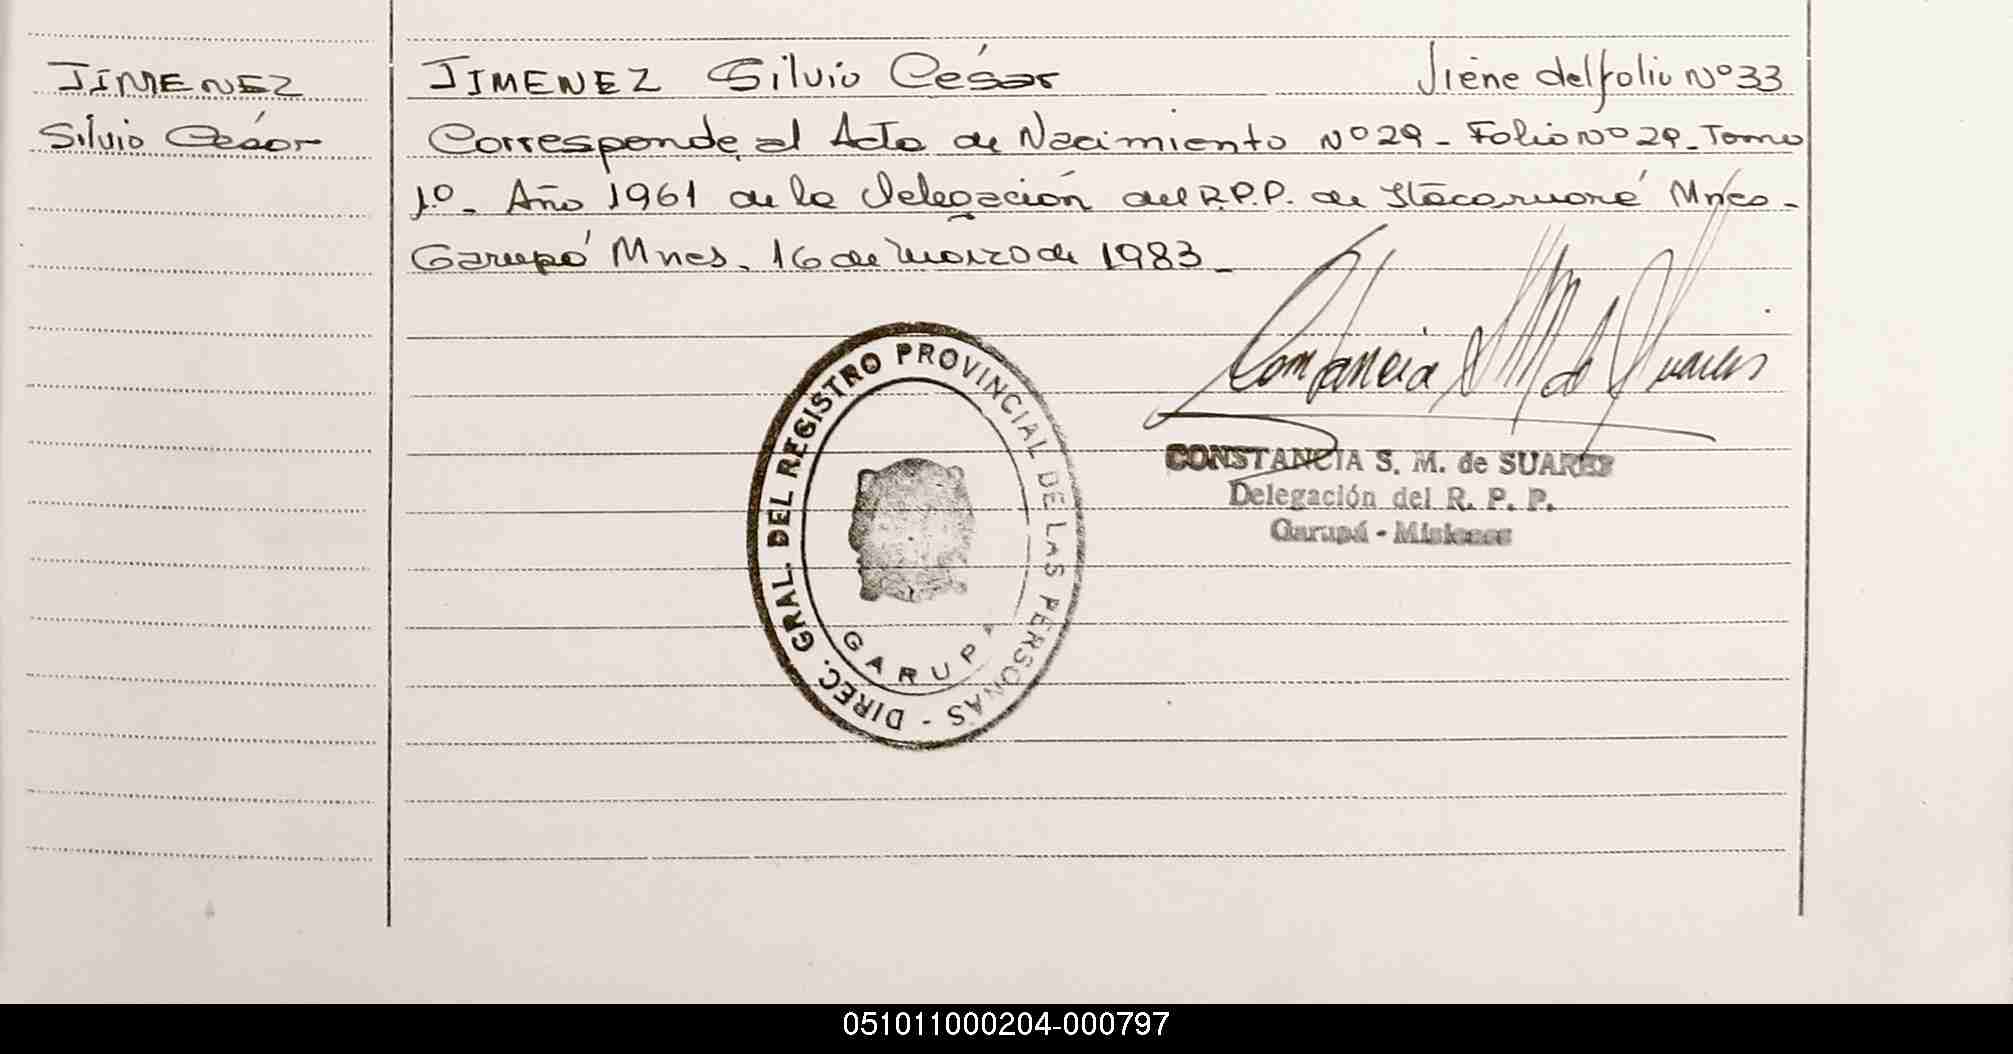 JIMENEZ
Silvio César
JIMENEZ Silvio César Viene del folio Nº 33
Corresponde al Acta de Nacimiento Nº 29 - Folio Nº 29 - Tomo
1º - Año 1961 de la Delegación del R.P.P. de Itacaruaré Mnes -
Garupá Mnes. 16 de marzo de 1983 -
Constancia S M de Suarez
CONSTANCIA S. M. de SUAREZ
Delegación del R. P. P.
Garupá - Misiones
DIREC. GRAL. DEL REGISTRO PROVINCIAL DE LAS PERSONAS -
GARUPA
051011000204-000797